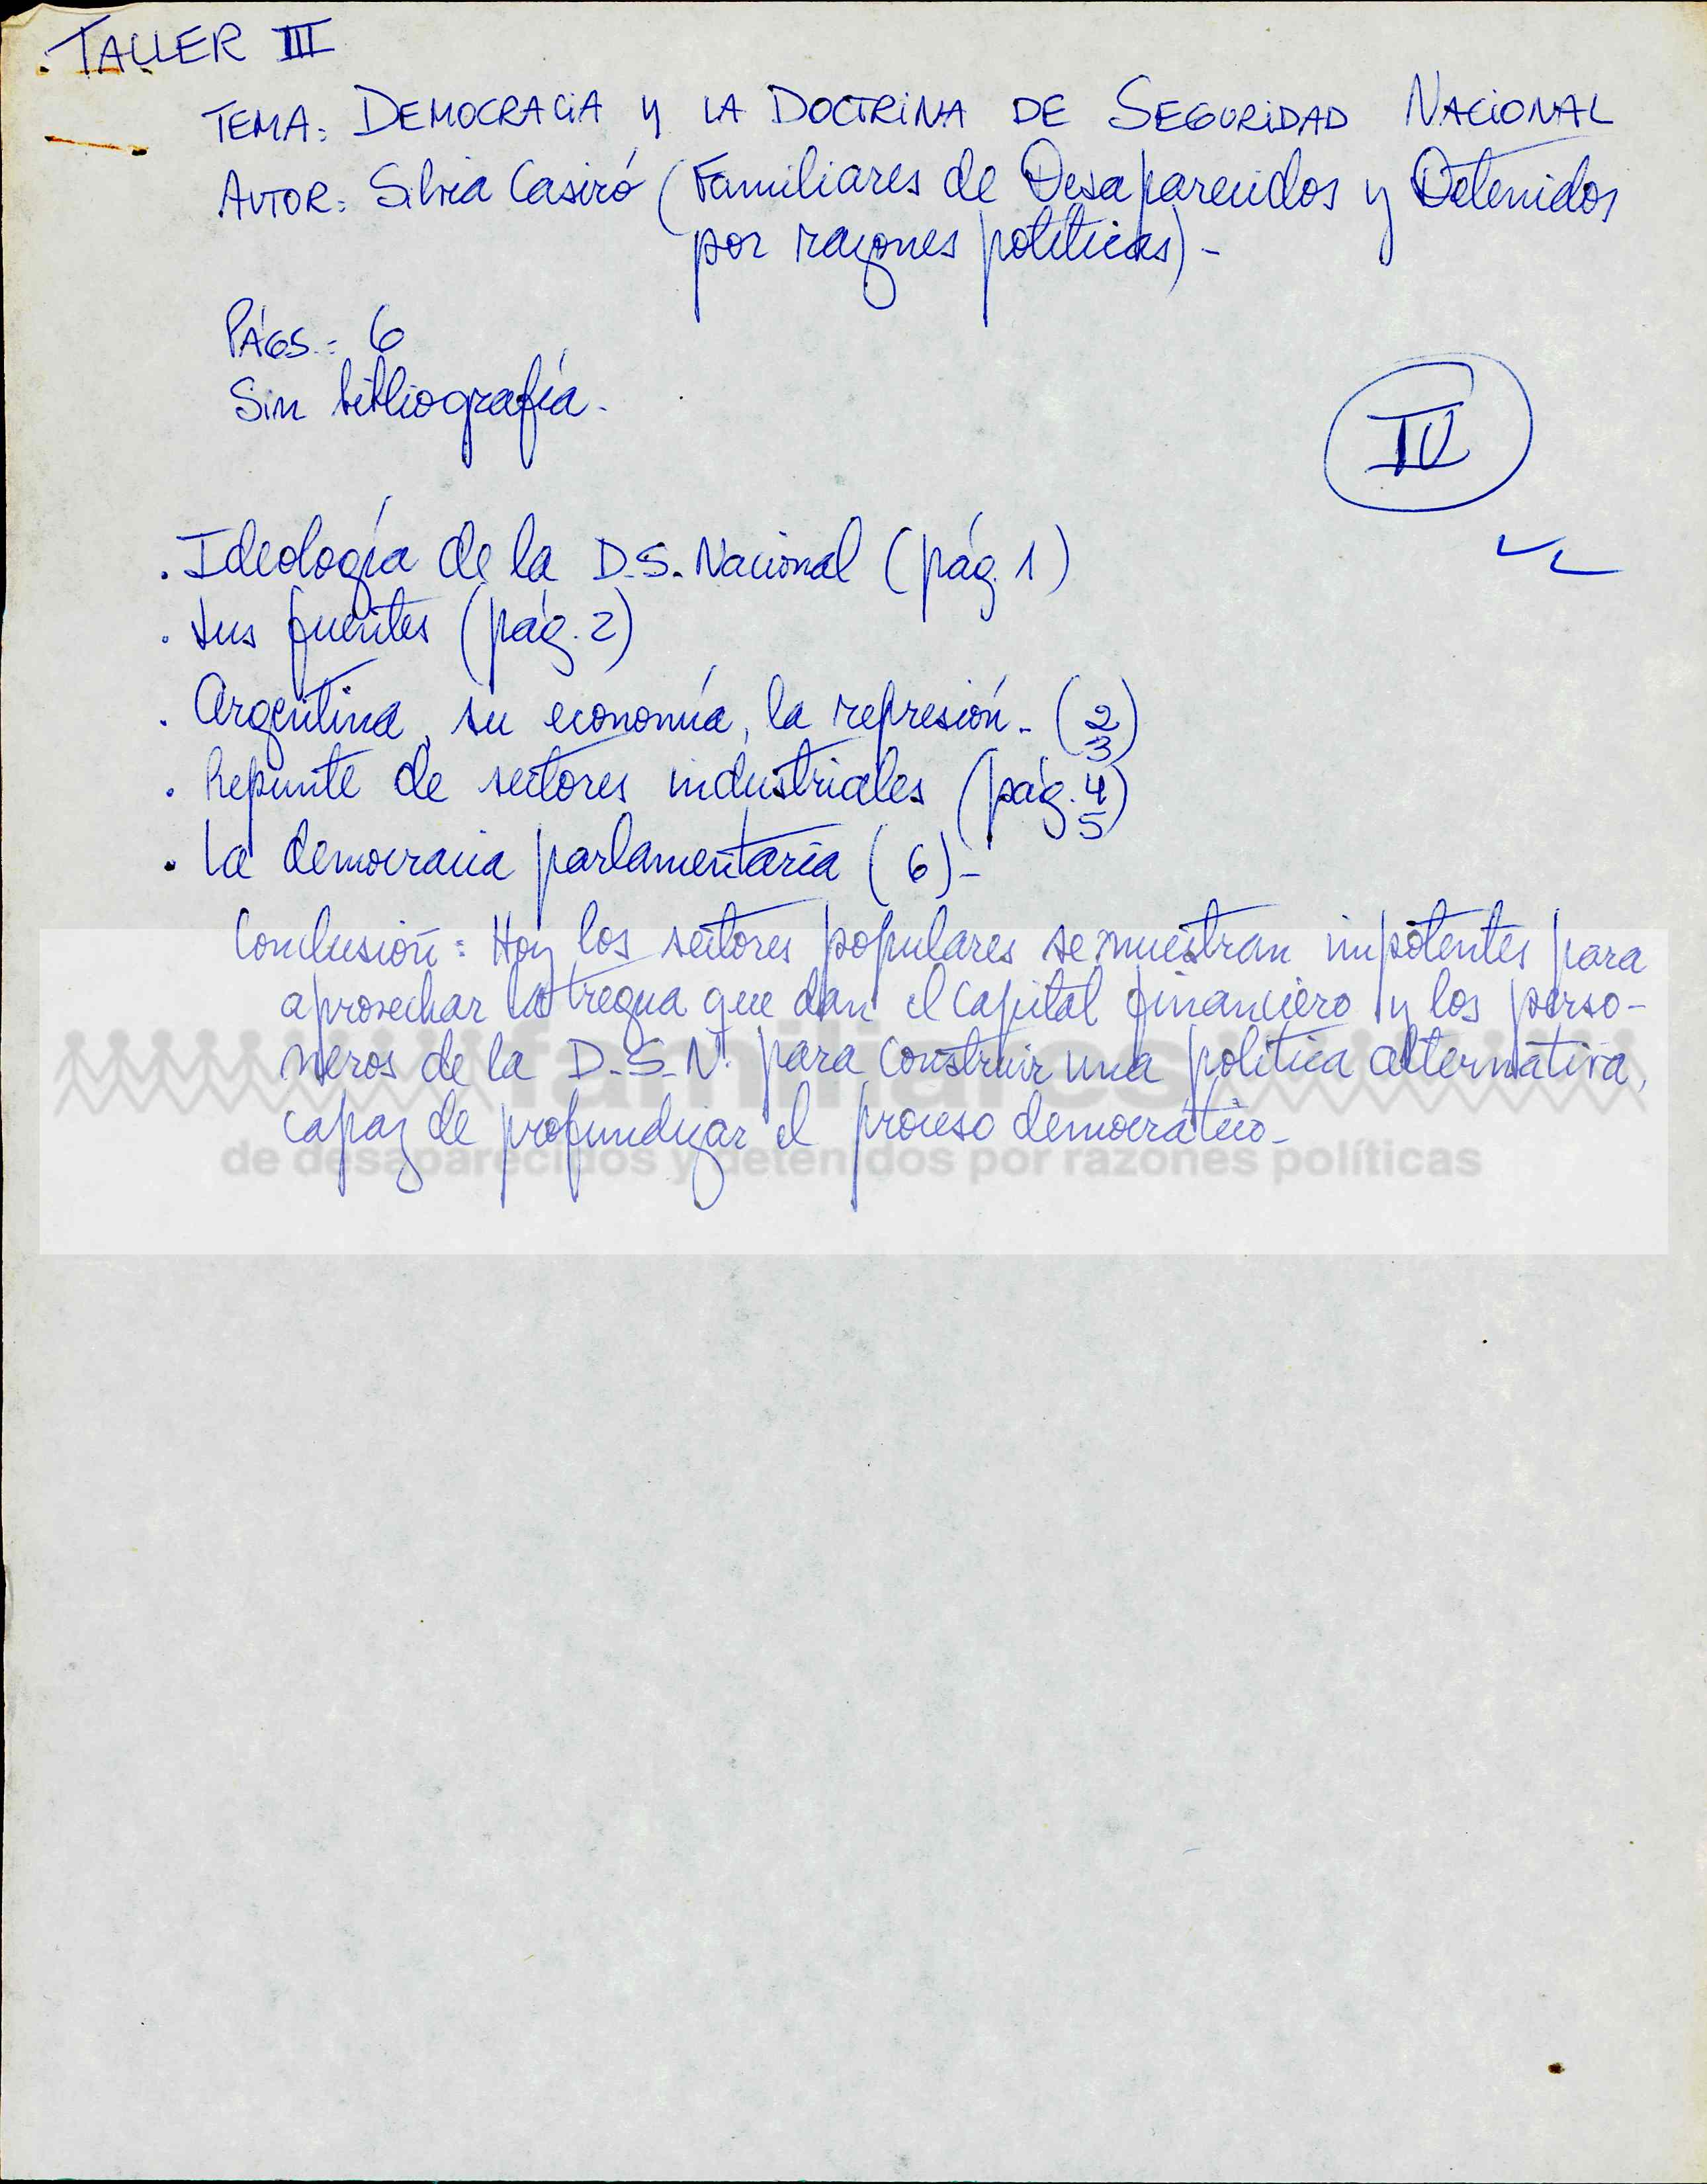 . TALLER III
TEMA: DEMOCRACIA Y LA DOCTRINA DE SEGURIDAD NACIONAL
AUTOR: Silvia Casiró (Familiares de Desaparecidos y Detenidos
por razones políticas) -
PÁGS.: 6
Sin bibliografía.
IV
. Ideología de la D.S. Nacional (pág. 1)
. Sus fuentes (pág. 2)
. Argentina, su economía, la represión. (2
3)
. Repunte de sectores industriales (pág. 4
5)
. La democracia parlamentaria (6)-
Conclusión: Hoy los sectores populares se muestran impotentes para
aprovechar la tregua que dan el capital financiero y los perso-
neros de la D.S.N. para construir una política alternativa,
capaz de profundizar el proceso democrático-
familiares
de desaparecidos y detenidos por razones políticas